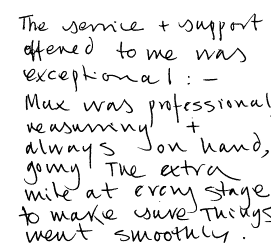 The service + support
offered to me was
exceptional : –
Max was professional,
reassuring +
always on hand,
going The extra
mile at every stage
to make sure Things
went smoothly.